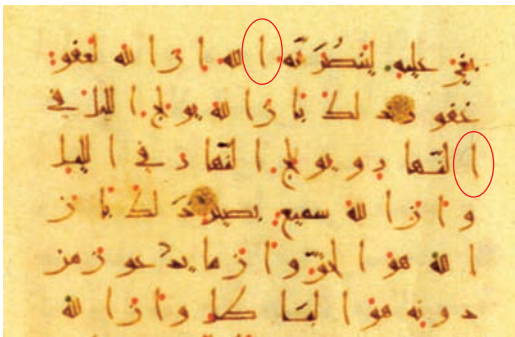 بغي عليه لينصرنه الله ان الله لعفو
غفور ذلك بان الله يولج اليل في
النهار ويولج النهار في اليل
وان الله سميع بصير ذلك بان
الله هو الحق وان ما يدعون من
دونه هو البطل وان الله